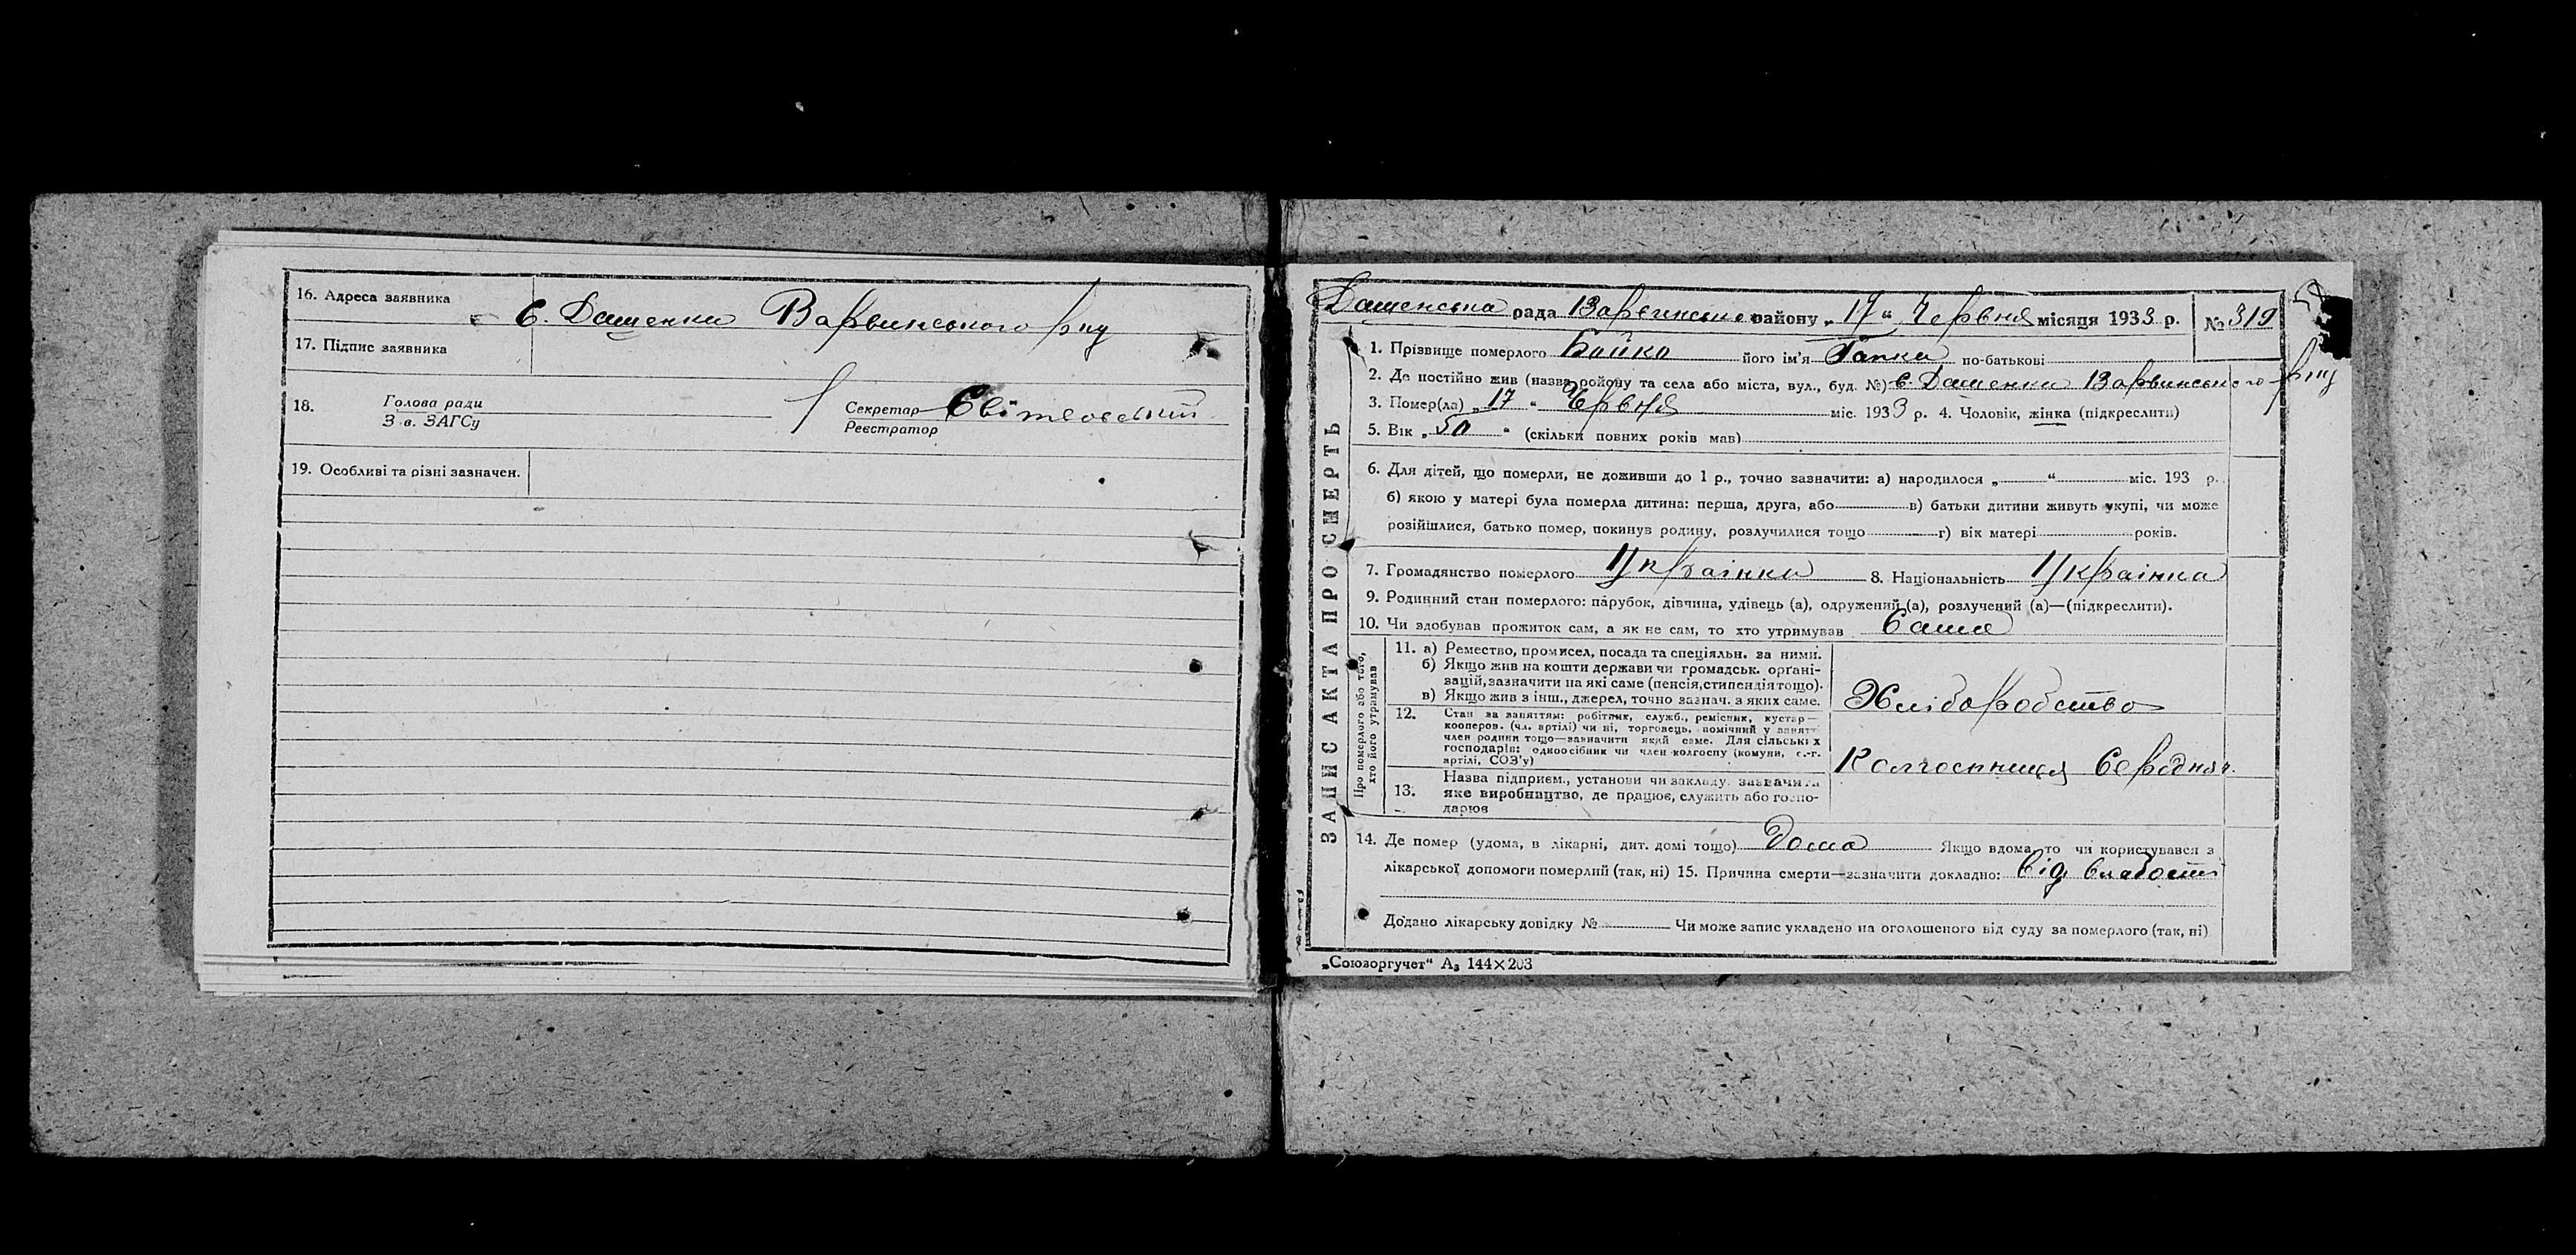 16. Адреса заявника с. Дащенки Варвинського р-ну
17. Підпис заявника
18. Голова ради
Зав. ЗАГСу
Секретар Світковський
Реєстратор
19. Особливі та різні зазначен.
ЗАПИС АКТА ПРО СМЕРТЬ
Дащенська рада Варвинського району „17“ Червня місяця 1933 р. № 319
1. Прізвище померлого Бойко його ім'я Гапка по-батькові
2. Де постійно жив (назва району та села або міста, вул., буд. №) с. Дащенки Варвинського р-ну
3. Помер(ла) „17“ Червня міс. 1933 р. 4. Чоловік, жінка (підкреслити)
5. Вік „50“ (скільки повних років мав)
6. Для дітей, що померли, не доживши до 1 р., точно зазначити: а) народилося „ “ міс. 193 р.
б) якою у матері була померла дитина: перша, друга, або в) батьки дитини живуть укупі, чи може
розійшлися, батько помер, покинув родину, розлучилися тощо г) вік матері років.
7. Громадянство померлого Українка 8. Національність Українка
9. Родинний стан померлого: парубок, дівчина, удівець (а), одружений (а), розлучений (а)—(підкреслити).
10. Чи здобував прожиток сам, а як не сам, то хто утримував Сама
Про померлого або того,
хто його утримував
11. а) Ремество, промисел, посада та спеціяльн. за ними.
б) Якщо жив на кошти держави чи громадськ. орґані-
зацій, зазначити на які саме (пенсія, стипендія тощо).
в) Якщо жив з інш., джерел, точно зазнач. з яких саме.
Хліборобство
12. Стан за заняттям: робітник, служб., ремісник, кустар—
кооперов. (чл. артілі) чи ні, торговець, помічний у занятт
член родини тощо—зазначити який саме. Для сільських
господарів: одноосібник чи член колгоспу (комуни, с.-г.
артілі, СОЗ'у)
Колгоспниця Середняч.
13. Назва підприєм., установи чи закладу, зазначити
яке виробництво, де працює, служить або госпо-
дарює
14. Де помер (удома, в лікарні, дит. домі тощо) Дома Якщо вдома, то чи користувався з
лікарської допомоги померлий (так, ні) 15. Причина смерти—зазначити докладно: від слабости
Додано лікарську довідку № Чи може запис укладено на оголошеного від суду за померлого (так, ні)
„Союзоргучет“ А₅ 144×203